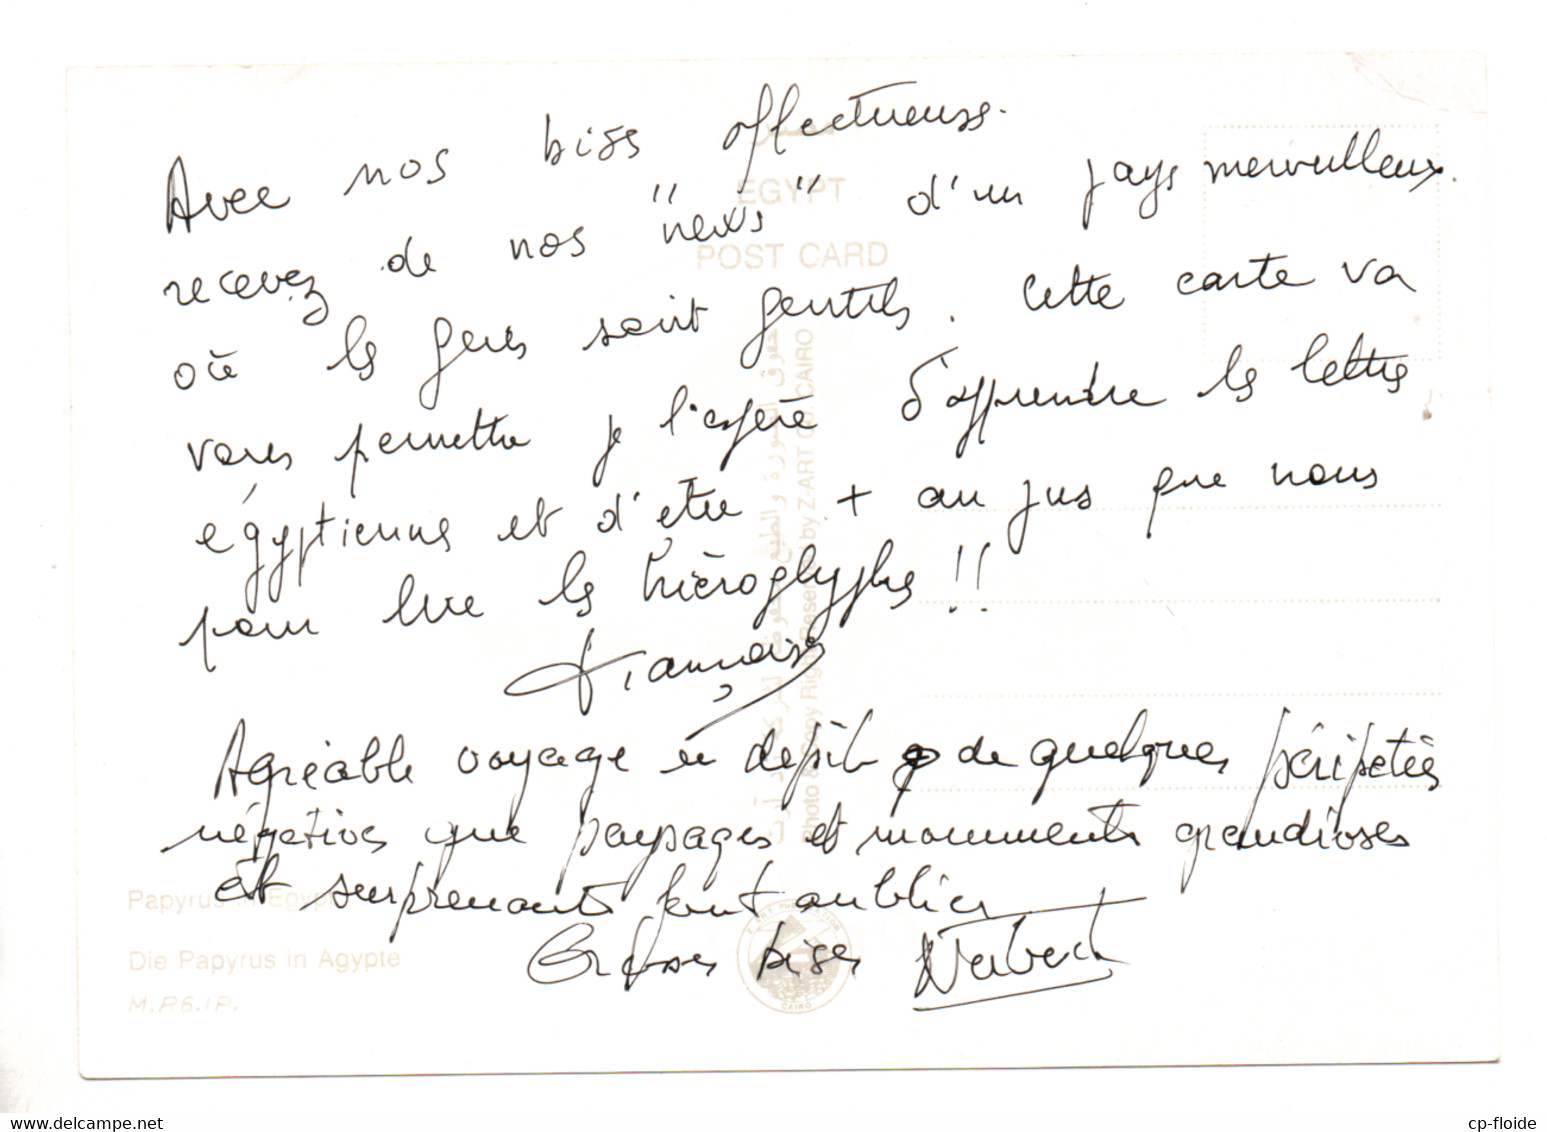 Avec nos bises affectueuses.
recevez de nos "news" d'un pays merveilleux.
où les gens sont gentils. Cette carte va
vous permettre je l'espère d'apprendre les lettres
égyptiennes et d'être + au jus que nous
pour lire les hiéroglyphes !!
Françoise
Agréable voyage en dépit de quelques péripéties
négatives que paysages et monuments grandioses
et surprenants font oublier
Grosses bises Norbert
مصر
EGYPT
POST CARD
Photo & Copy Right Reserved by Z-ART CO. CAIRO
Papyrus in Egypt
Die Papyrus in Agypte
M.R6.1P.
CAIRO
delcampe.net
cp-floide